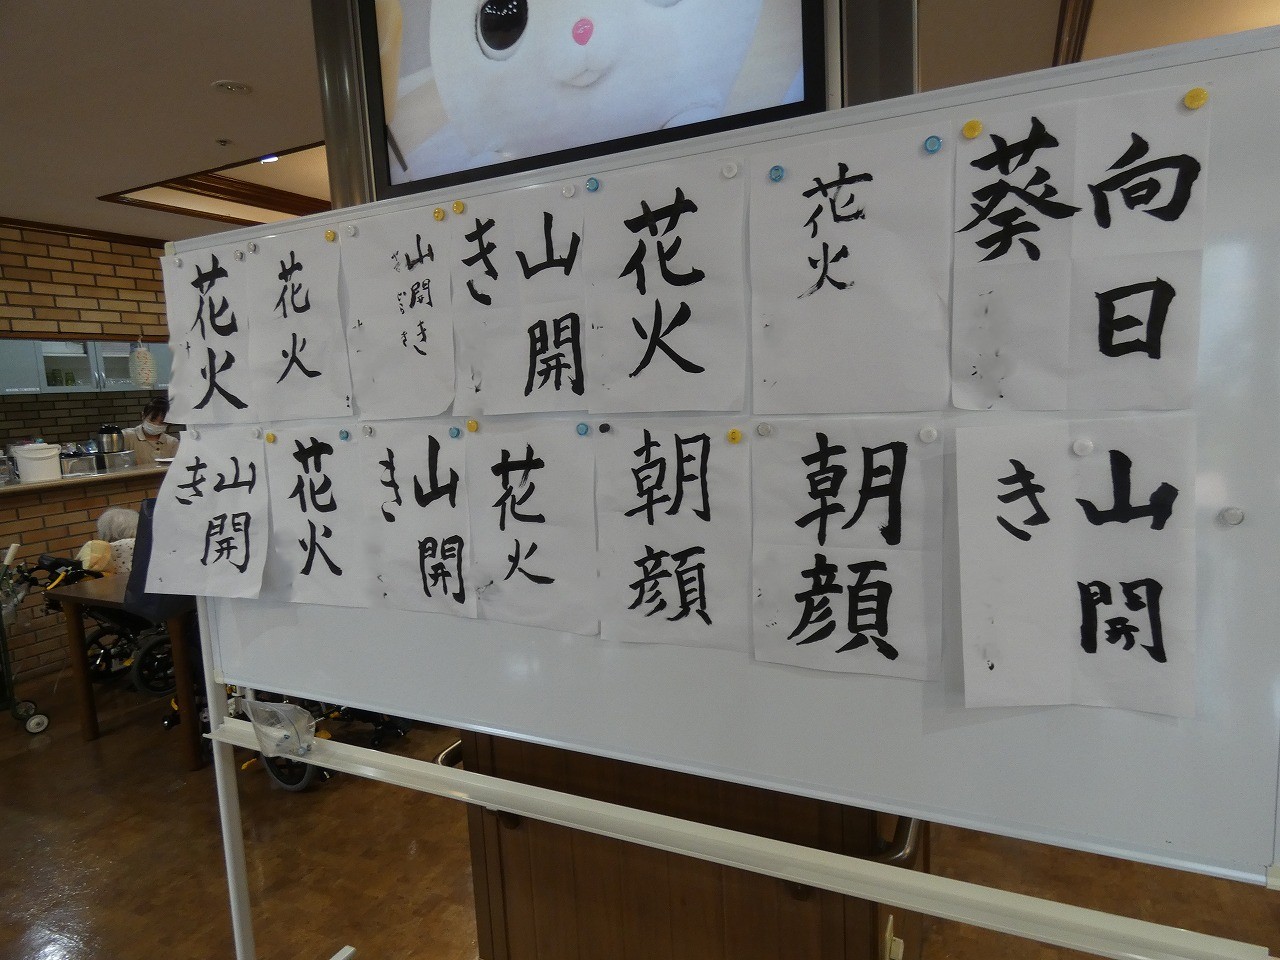 花火
花火
山開き
山開き
花火
花火
向日葵
山開き
花火
山開き
花火
朝顔
朝顔
山開き